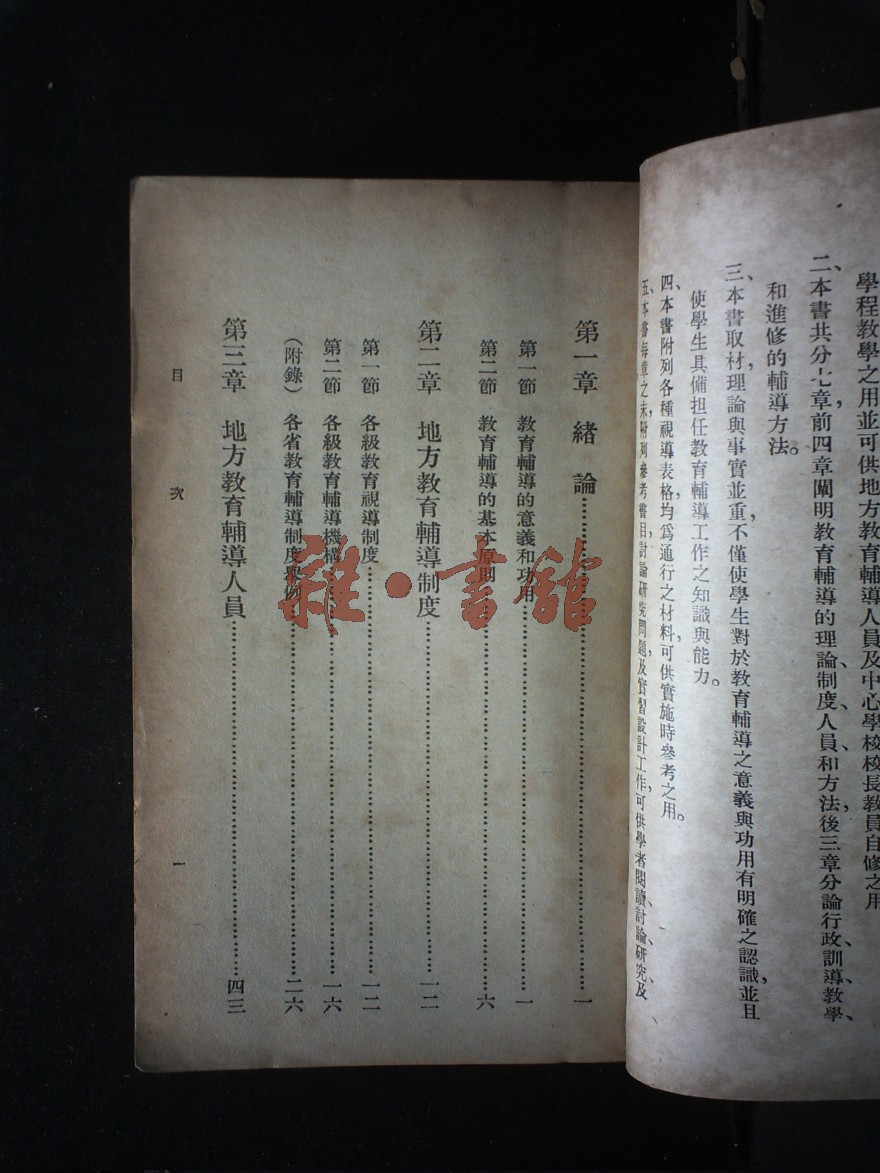 學程教學之用並可供地方教育輔導人員及中心學校校長教員自修之用
二、本書共分七章，前四章闡明教育輔導的理論、制度、人員和方法，後三章分論行政、訓導、教學、
和進修的輔導方法。
三、本書取材，理論與事實並重，不僅使學生對於教育輔導之意義與功用有明確之認識，並且
使學生具備担任教育輔導工作之知識與能力。
四、本書附列各種視導表格，均爲通行之材料，可供實施時參考之用。
五、本書每章之末，附列參考書目，討論研究問題，及實習設計工作，可供學者閱讀、討論、研究、及
第一章　緒　論……一
第一節　教育輔導的意義和功用……一
第二節　教育輔導的基本原則……六
第二章　地方教育輔導制度……一二
第一節　各級教育視導制度……一二
第二節　各級教育輔導機構……一六
（附錄）各省教育輔導制度舉例……二六
第三章　地方教育輔導人員……四三
目　次　一
雜·書館